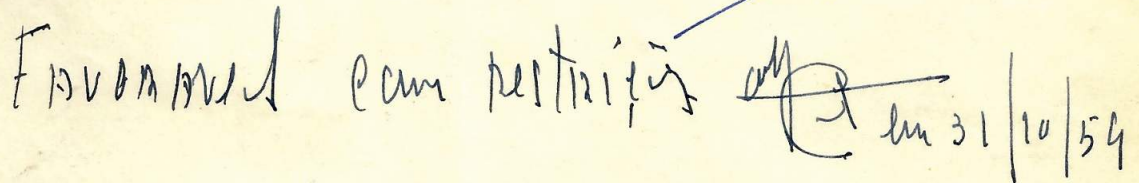 Favoravel com restrições em 31/10/54